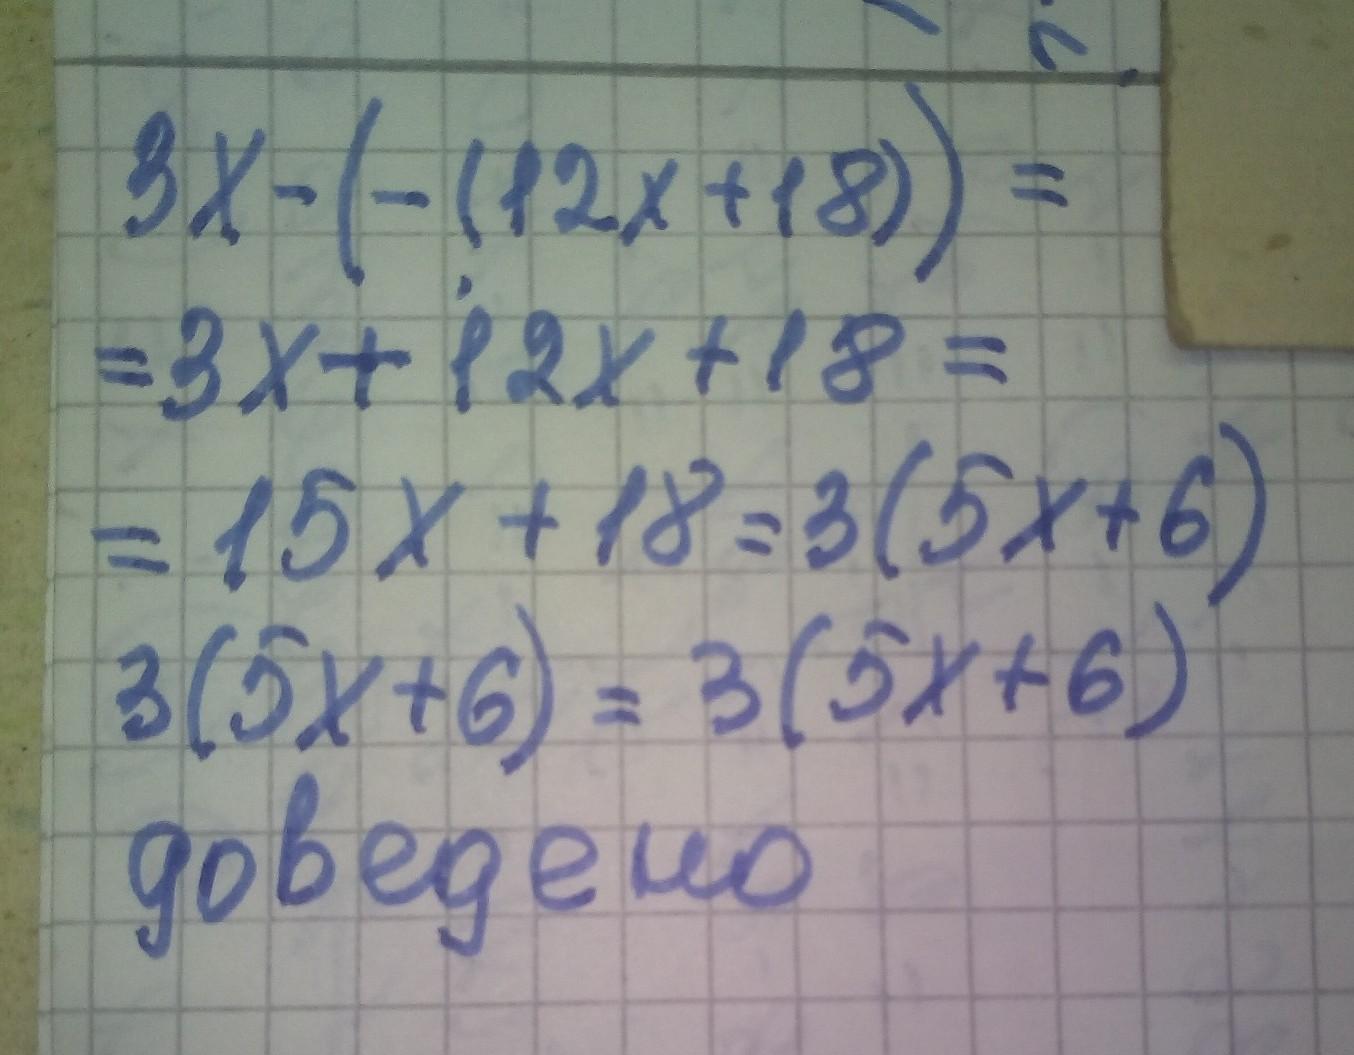 3x-(-(12x+18))=
=3x+12x+18=
=15x+18=3(5x+6)
3(5x+6)=3(5x+6)
доведено